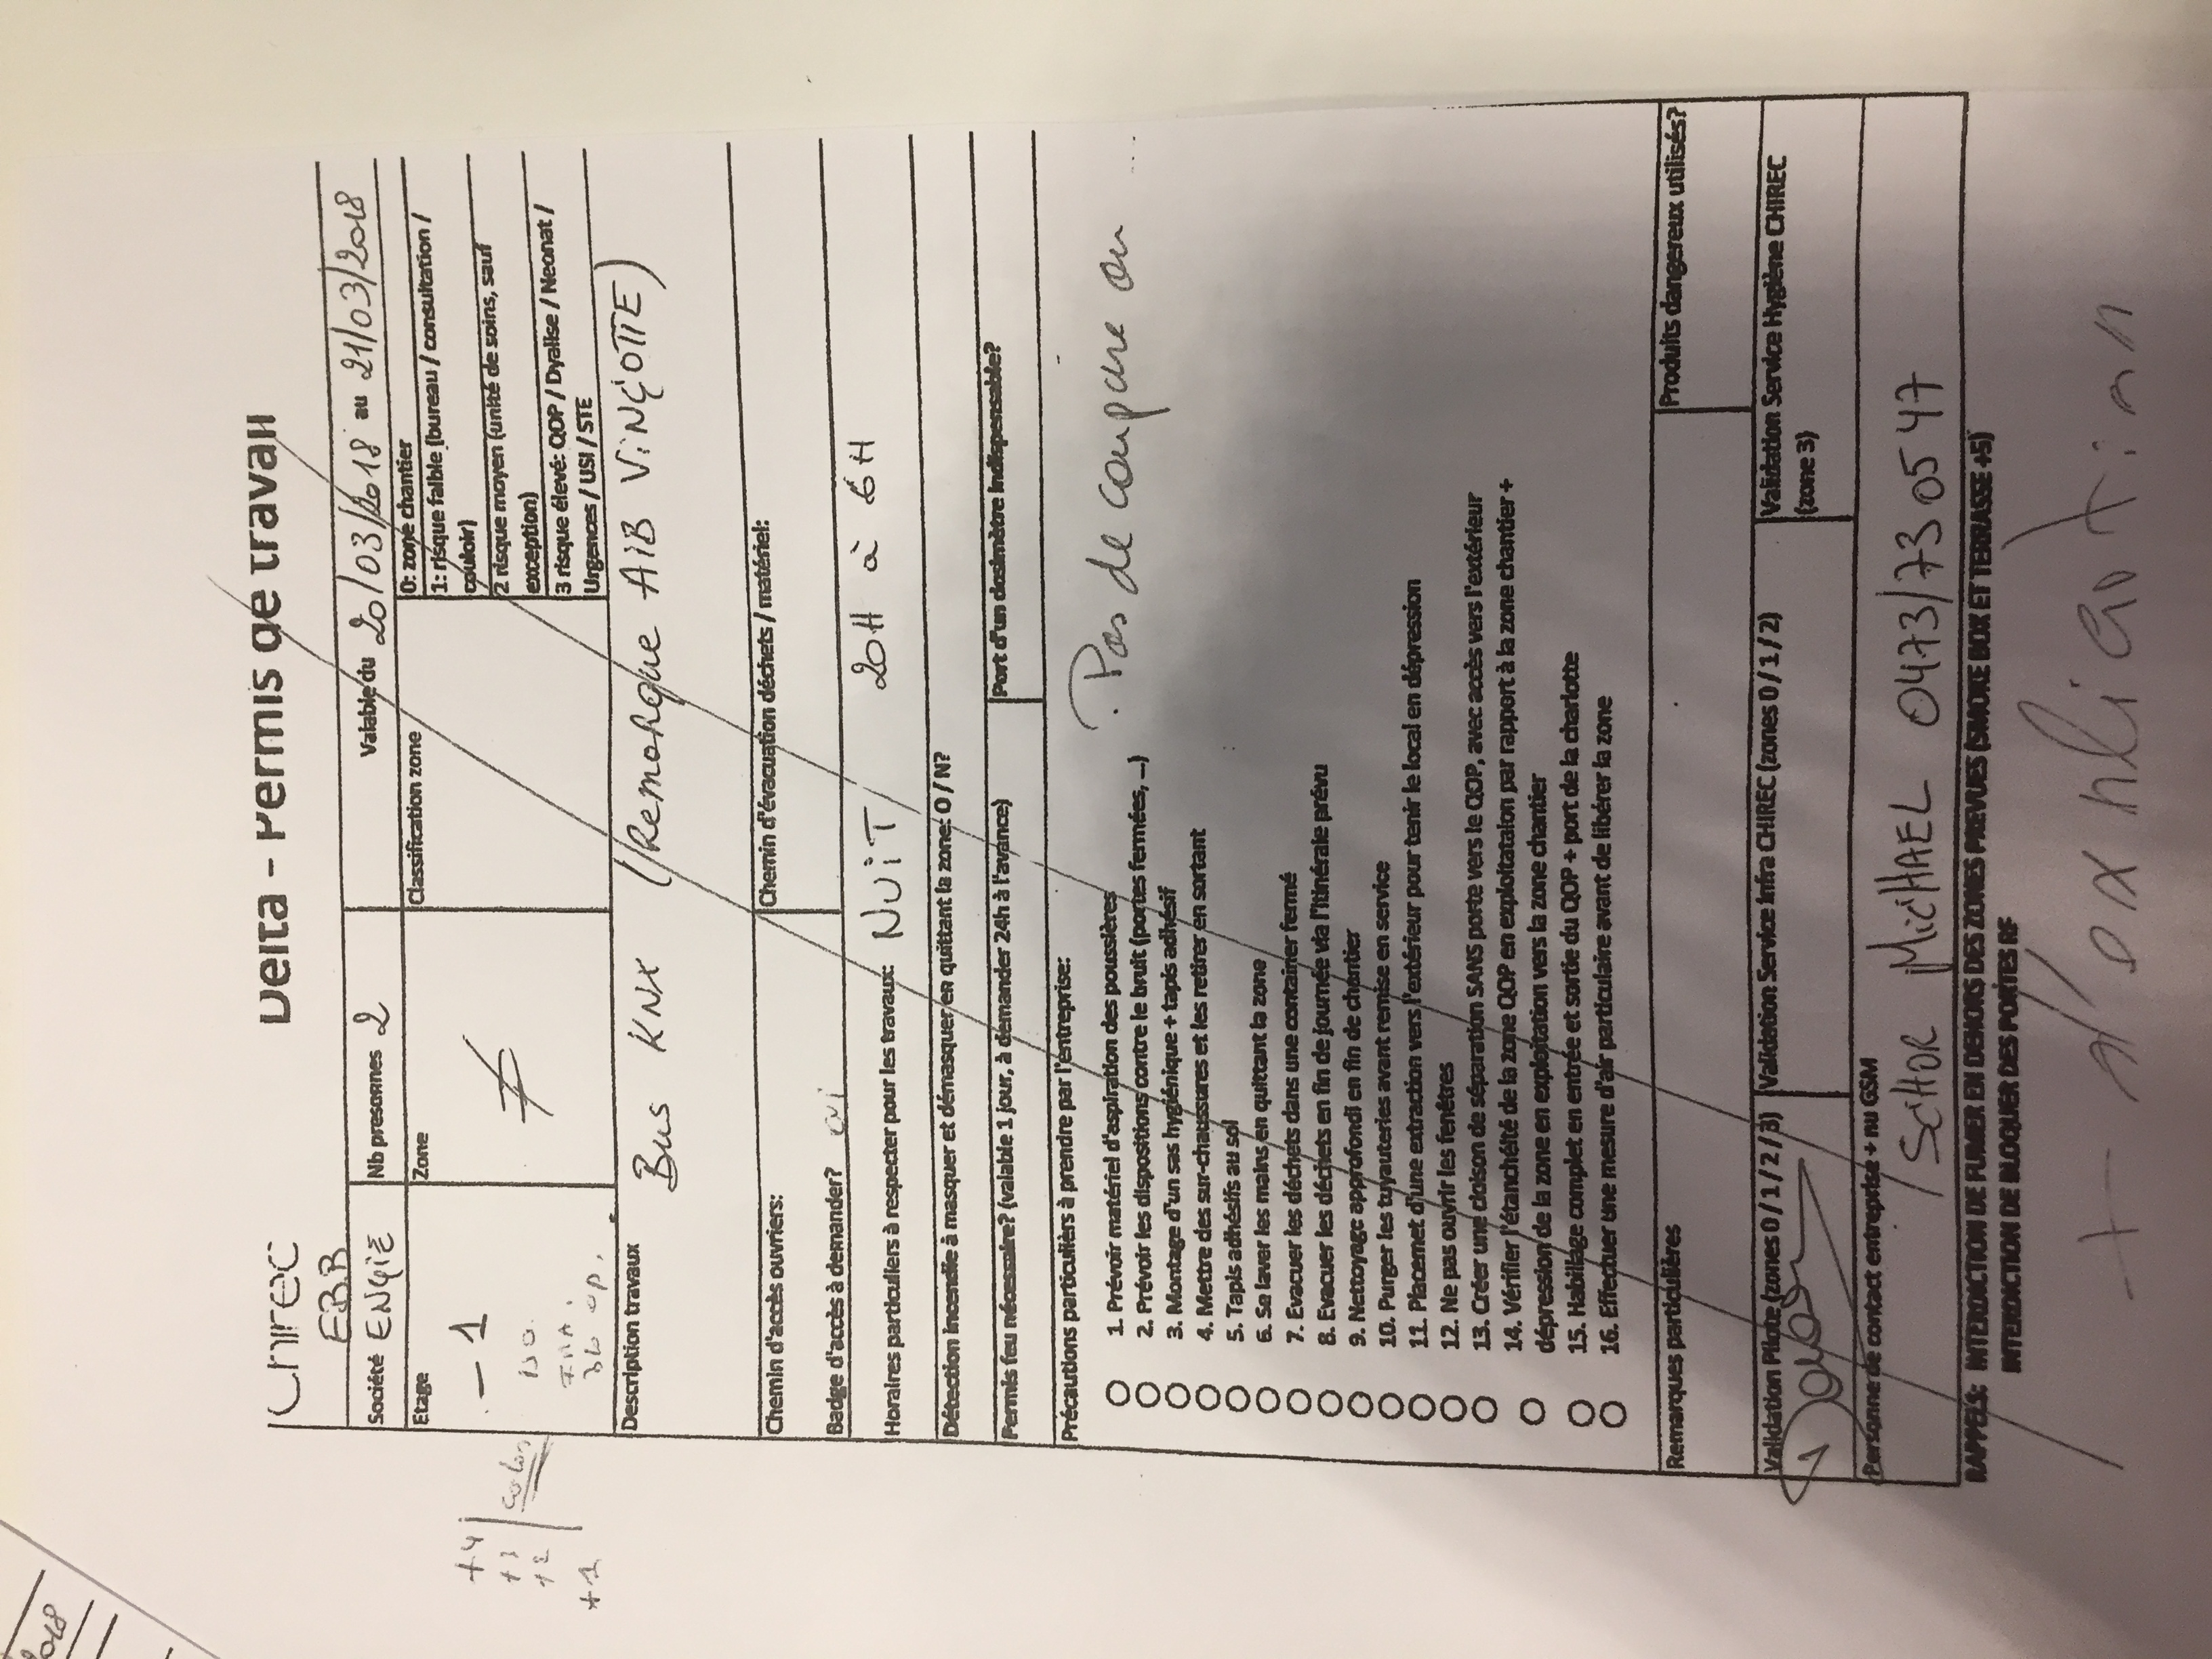 2018
Chirec
Delta - Permis de travail
EBB
Société ENGIE
Nb presonnes 2
Valable du 20/03/2018 au 21/03/2018
Etage
- 1
iso.
bio op.
+4
+3
+2
+1
Zone
≠
Classification zone
0: zone chantier
1: risque faible (bureau / consultation /
couloir)
2 risque moyen (unité de soins, sauf
exception)
3 risque élevé: QOP / Dyalise / Neonat /
Urgences / USI / STE
Description travaux
Bus KNX (Remarque AIB VINÇOTTE)
Chemin d'accès ouvriers:
Chemin d'évacuation déchets / matériel:
Badge d'accès à demander? oui
Horaires particuliers à respecter pour les travaux: NUIT 20H à 6H
Détection incendie à masquer et démasquer en quittant la zone: O / N?
Permis feu nécessaire? (valable 1 jour, à demander 24h à l'avance)
Port d'un dosimètre indispensable?
Précautions particulièrs à prendre par l'entreprise:
Pas de coupure ou ....
1. Prévoir matériel d'aspiration des poussières
2. Prévoir les dispositions contre le bruit (portes fermées, ...)
3. Montage d'un sas hygiénique + tapis adhésif
4. Mettre des sur-chaussures et les retirer en sortant
5. Tapis adhésifs au sol
6. Se laver les mains en quittant la zone
7. Evacuer les déchets dans une container fermé
8. Evacuer les déchets en fin de journée via l'itinéraie prévu
9. Nettoyage approfondi en fin de chantier
10. Purger les tuyauteries avant remise en service
11. Placemet d'une extraction vers l'extérieur pour tenir le local en dépression
12. Ne pas ouvrir les fenêtres
13. Créer une cloison de séparation SANS porte vers le QOP, avec accès vers l'extérieur
14. Vérifier l'étanchéité de la zone QOP en exploitataion par rapport à la zone chantier +
dépression de la zone en exploitation vers la zone chantier
15. Habillage complet en entrée et sortie du QOP + port de la charlotte
16. Effectuer une mesure d'air particulaire avant de libérer la zone
Remarques particulières
Produits dangereux utilisés?
Validation Pilote (zones 0 / 1 / 2 / 3)
Validation Service Infra CHIREC (zones 0 / 1 / 2)
Validation Service Hygiène CHIREC
(zone 3)
Personne de contact entreprise + nu GSM
SCHOR MICHAEL 0473/73 05 47
RAPPELS: INTERDICTION DE FUMER EN DEHORS DES ZONES PREVUES (SMOKE BOX ET TERRASSE +5)
INTERDICTION DE BLOQUER DES PORTES RF
+ d'explication